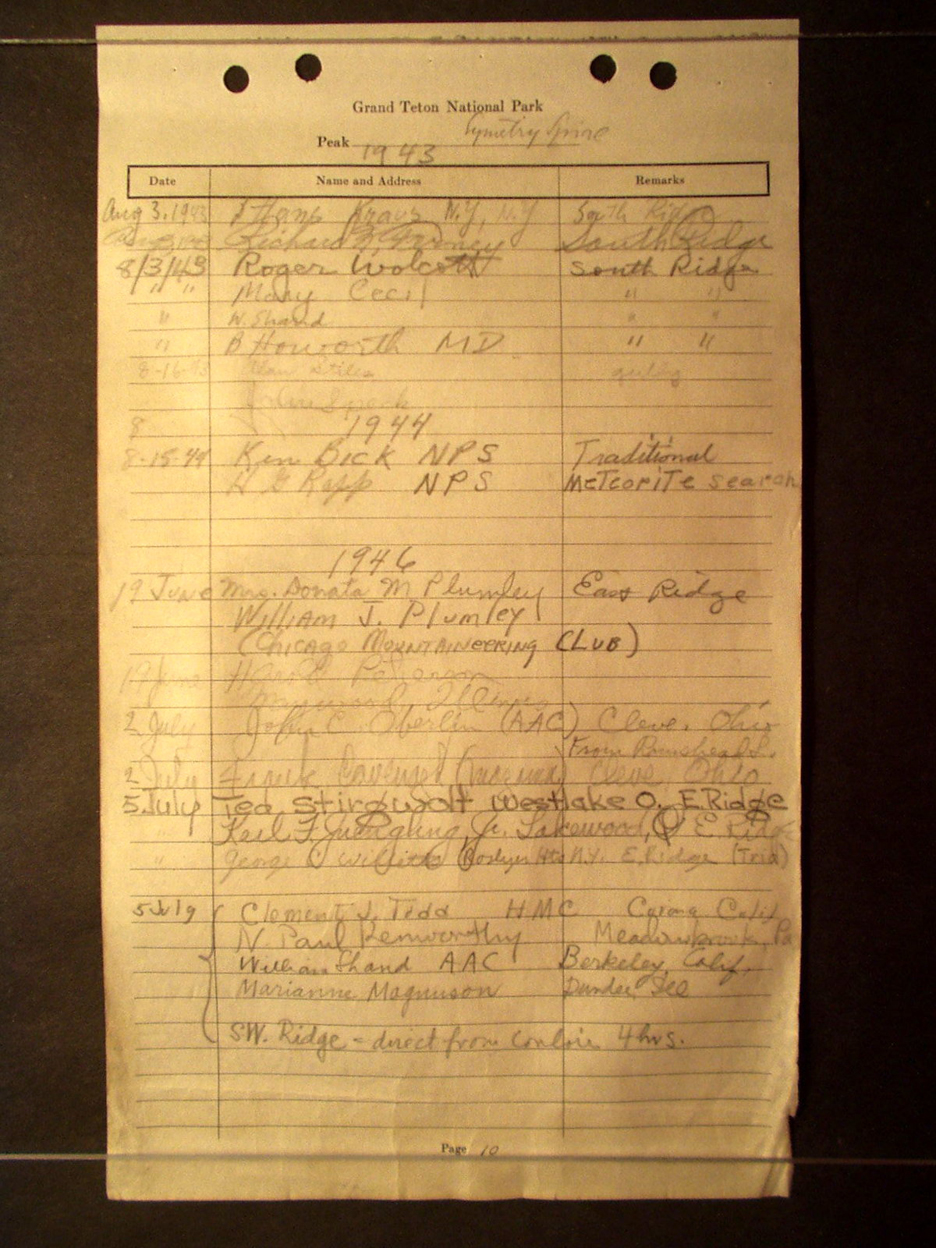 Grand Teton National Park
Symetry Spire
Peak 1943
Date Name and Address Remarks
Aug 3.1943 Hans Kraus N.Y, N.Y South Ridge
Richard South Ridge
8/3/43 Roger Wolcott South Ridge
" " Mary Cecil " "
" W. Shand " "
" B Howorth MD " "
8-16-43 Alan Stiles gully
John Speck
8 1944
8-15-44 Ken Bick NPS Traditional
H G Rapp NPS MeTeoriTe search
1946
19 June Mrs. Donata M Plumley East Ridge
William J. Plumley
(Chicago Mountaineering Club)
19 June Harold Peterson
Maywood, Illinois
2 July John C. Oberlin (AAC) Cleve. Ohio
From Ramshead L.
2 July Frank Cleve, Ohio
5 July Ted Stirgwolt Westlake O. E. Ridge
Karl F. Jr. Lakewood, O E. Ridge
" George C (Roslyn Hts N.Y. E. Ridge (Trid)
5 July Clement J. Todd HMC Calif
N. Paul Kenworthy Meadowbrook, Pa
William Shand AAC Berkeley, Calif.
Marianne Magnuson Dundee, Ill
SW. Ridge - direct from couloir 4 hrs.
Page 10